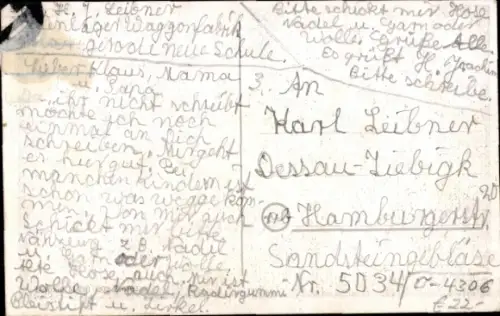 H. J. Leibner
lager Waggonfabrik
neue Schule.
Lieber Klaus, Mama
u. Papa
ihr nicht schreibt
möchte ich noch
einmal an Eich
schreiben. Mir geht
es hier gut. Bei
manchen Kindern ist
schon was weggekom-
men. Von mir auch
Schickt mir bitte
z.B. Nadel
u. Garn oder
Hose auch. Hier ist
Wolle Nadel, Radiergummi
Bleistift u. Zirkel.
Bitte schickt mir Hose
Nadel u. Garn oder
Wolle. Grüße Alle
Es grüßt H.
Bitte schreibe.
3. An
Karl Leibner
Dessau-Ziebigk
Hamburgerstr.
Sandsteingebläse
Nr. 5034
D-4306
£22-